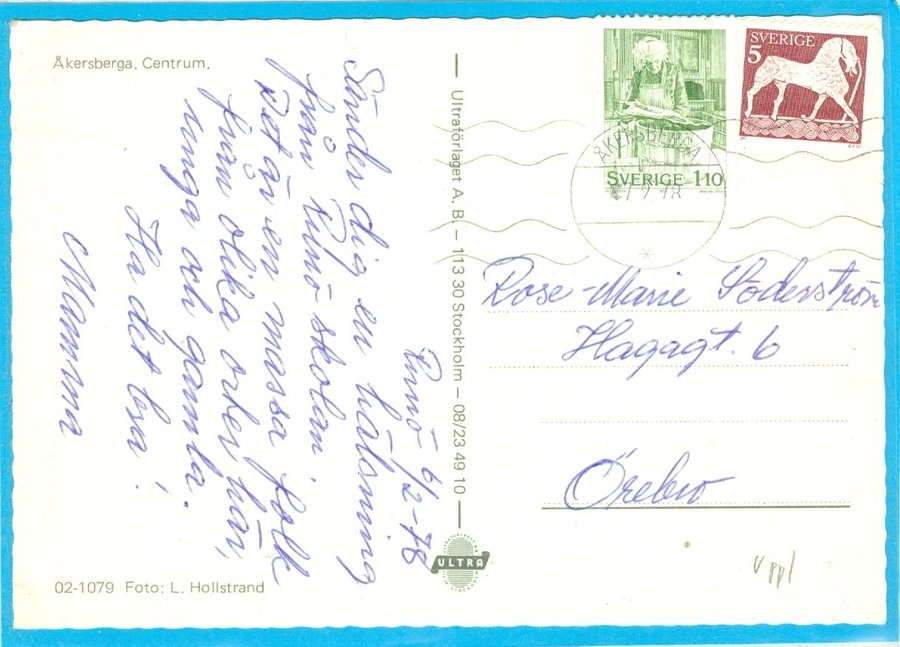 Åkersberga, Centrum.
Runö 6/2-78
Sänder dig en hälsning
från Runö skolan.
Det är en massa folk
från olika orter här,
unga och gamla.
Ha det bra!
Mamma
02-1079 Foto: L. Hollstrand
Ultraförlaget A. B. – 113 30 Stockholm – 08/23 49 10
ULTRA
SVERIGE 110
SVERIGE
5
ÅKERSBERGA
7 2 78
Rose-Marie Söderström
Hagagt. 6
Örebro